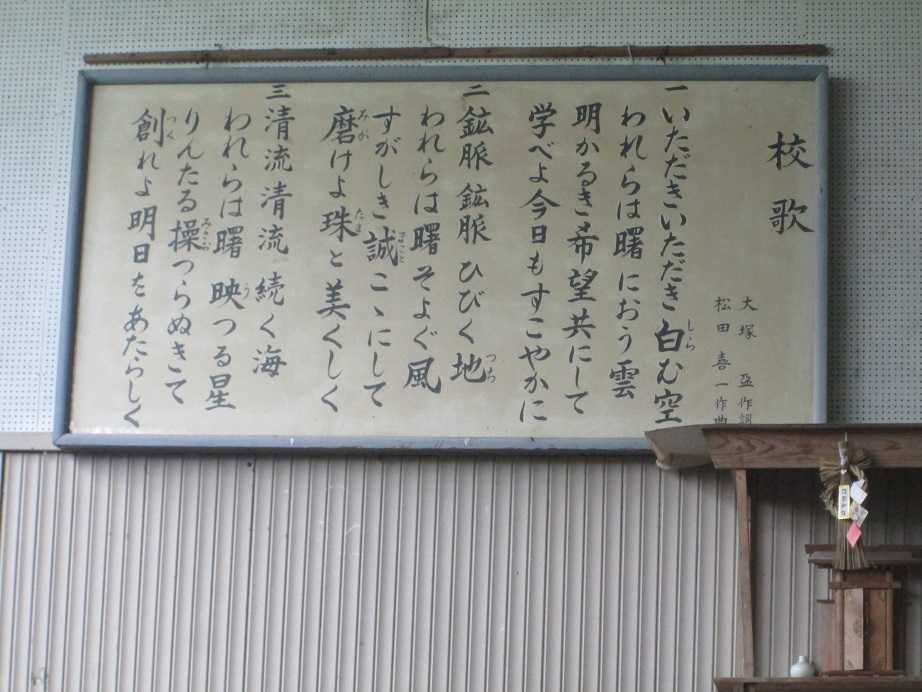 校歌
大塚 亞作詞
松田喜一作曲
一 いただきいただき白む空
しら
われらは曙におう雲
明かるき希望共にして
学べよ今日もすこやかに
二 鉱脈鉱脈ひびく地
つち
われらは曙そよぐ風
すがしき誠こゝにして
まこと
磨けよ珠と美くしく
みが
たま
三 清流清流続く海
われらは曙映つる星
う
りんたる操つらぬきて
みさお
創れよ明日をあたらしく
つく